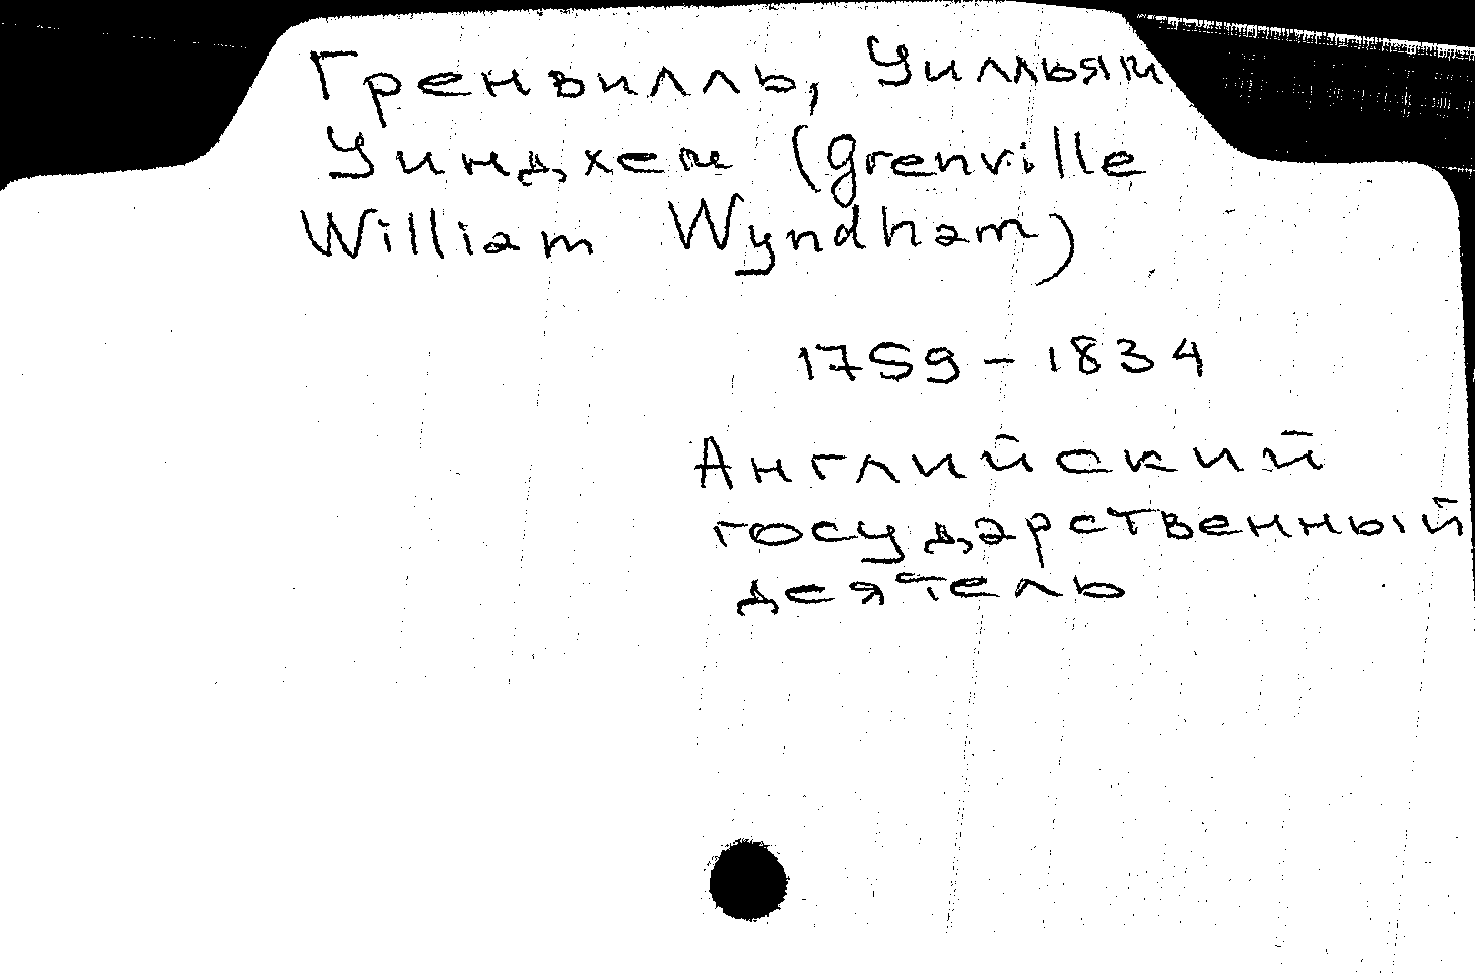 Гренвилль, Уилльям
Уиндхем (Grenville
William Wyndham)
1759-1834
Английский
государственный
деятель